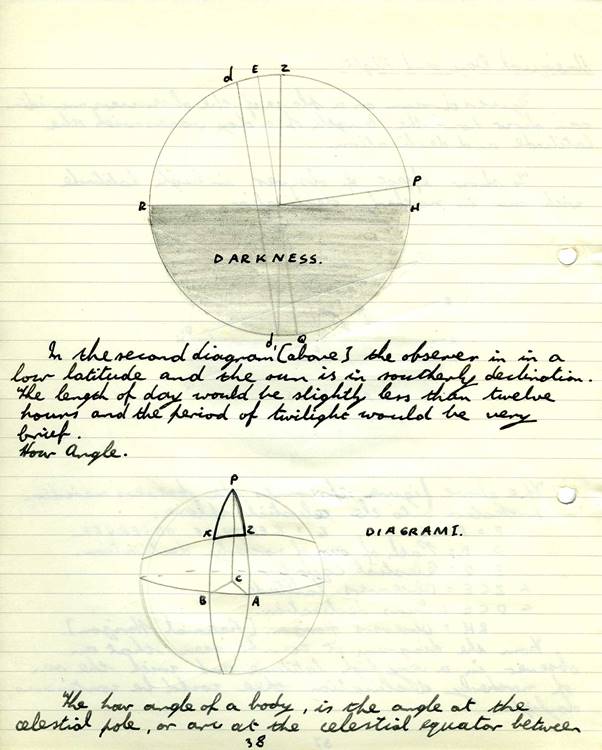 d E Z
P
R H
DARKNESS.
d, Q
In the second diagram [above] the observer in in a
low latitude and the sun is in southerly declination.
The length of day would be slightly less than twelve
hours and the period of twilight would be very
brief.
Hour Angle.
P
X Z
DIAGRAM I.
C
B A
The hour angle of a body, is the angle at the
celestial pole, or arc at the celestial equator between
38